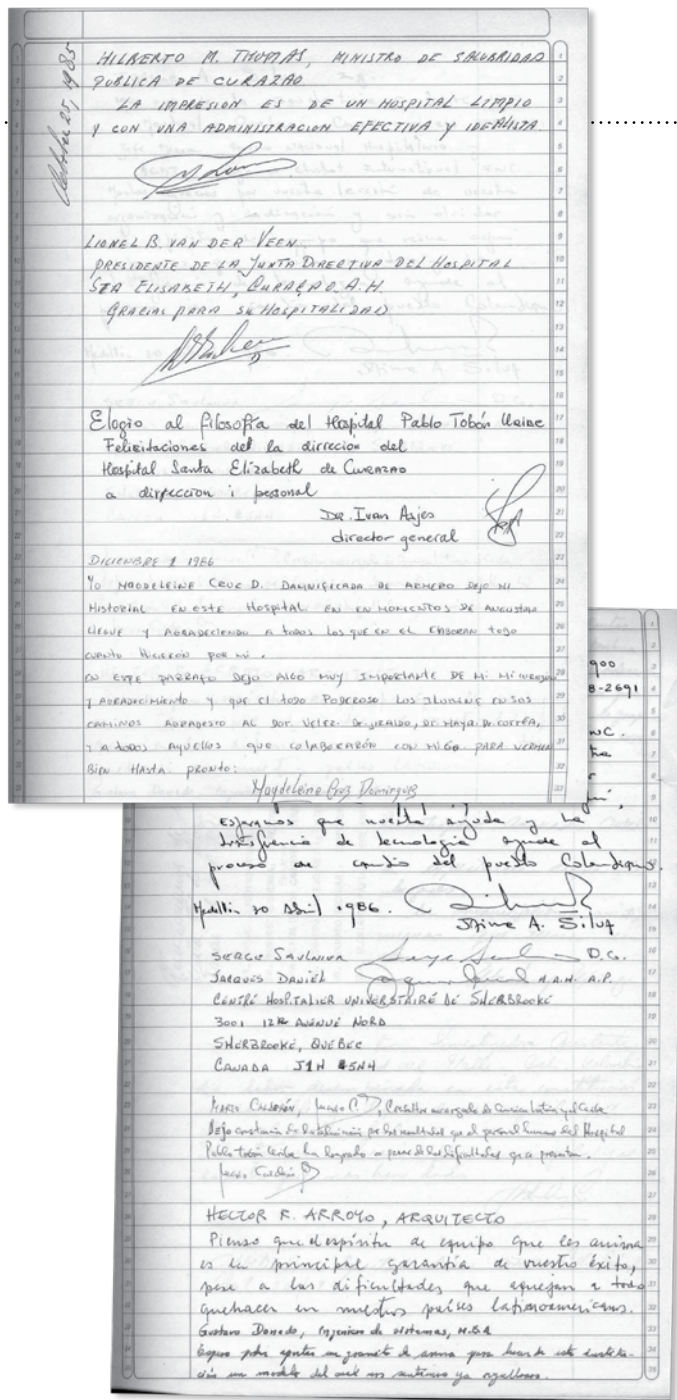 Octubre 25, 1985
HILBERTO M. THOMAS, MINISTRO DE SALUBRIDAD
PUBLICA DE CURAZAO
LA IMPRESION ES DE UN HOSPITAL LIMPIO
Y CON UNA ADMINISTRACION EFECTIVA Y IDEALISTA.
LIONEL B. VAN DER VEEN
PRESIDENTE DE LA JUNTA DIRECTIVA DEL HOSPITAL
STA ELISABETH, CURAÇAO, A.H.
GRACIAS PARA SU HOSPITALIDAD
Elogio al filosofía del Hospital Pablo Tobón Uribe
Felicitaciones del la dirrecion del
Hospital Santa Elizabeth de Curazao
a dirpeccion i personal
DR. Ivan Asjes
director general
DICIEMBRE 1 1986
YO MAGDELEINE CRUZ D. DAMNIFICADA DE ARMERO DEJO MI
HISTORIAL EN ESTE HOSPITAL EN EN MOMENTOS DE ANGUSTIA
LLEGUE Y AGRADECIENDO A TODOS LOS QUE EN EL ELABORAN TODO
CUANTO HICIERON POR MI.
EN ESTE PARRAFO DEJO ALGO MUY IMPORTANTE DE MI MI CORAZON
Y AGRADECIMIENTO Y QUE EL TODO PODEROSO LOS ILUMINE EN SUS
CAMINOS AGRADESCO AL DOT. VELEZ. DR. GIRALDO, DR. MAYA. DR. CORREA,
Y A TODOS AQUELLOS QUE COLABORARÓN CON MIGO PARA VERME
BIEN HASTA PRONTO:
Magdeleine Cruz Dominguez
900
8-2691
esperamos que nuestra ayuda y la
transferencia de tecnología ayude al
proceso de cambio del pueblo Colombiano.
Medellin 30 Abril 1986.
Jaime A. Silva
SERGE SAULNIER D.G.
JACQUES DANIEL A.P.
CENTRE HOSPITALIER UNIVERSITAIRE DE SHERBROOKE
3001 12E AVENUE NORD
SHERBROOKE, QUÉBEC
CANADA J1H 5N4
Mario Calderón, Consultor encargado de America Latina y el Caribe
Dejo constancia de la admiración por los resultados que el personal humano del Hospital
Pablo Tobón Uribe ha logrado a pesar de las dificultades que se presentan.
HECTOR R. ARROYO, ARQUITECTO
Pienso que el espíritu de equipo que les anima
es la principal garantía de vuestro éxito,
pese a las dificultades que aquejan a todo
quehacer en nuestros países latinoamericanos.
Gustavo Donado, Ingeniero de sistemas, M.B.A
Espero poder aportar un granito de arena para hacer de esta institu-
ción un modelo del cual nos sentimos ya orgullosos.